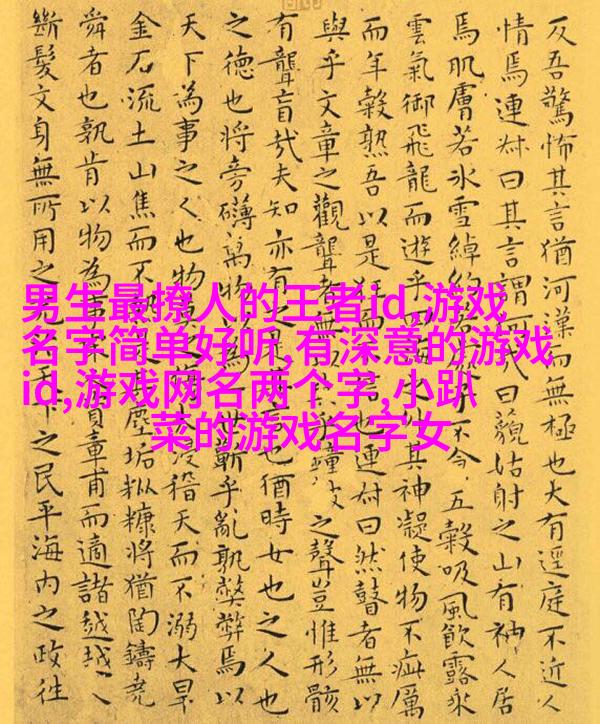 男生最撩人的王者id,游戏
名字简单好听,有深意的游戏
id,游戏网名两个字,小趴
菜的游戏名字女
反吾驚怖其言猶河漢而無極也大有逕庭不近人
情焉連叔曰其言謂何哉曰藐姑射之山有神人居
焉肌膚若冰雪綽約若不食五穀吸風飲露乘
雲氣御飛龍而遊乎四海之外其神凝使物不疵厲
而年穀熟吾以是狂而也連叔曰然瞽者無以
與乎文章之觀聾者無以乎鐘之聲豈惟形骸
有聾盲哉夫知亦有之是言也猶時女也之人也
之德也將旁礴萬物以為世蘄乎亂孰弊弊焉以
天下為事之人也物莫之大浸稽天而不溺大旱
金石流土山焦而不其塵垢粃糠將猶陶鑄堯
舜者也孰肯以物為事資章甫而適諸越越人
斷髮文身無所用之天下之民平海内之政往